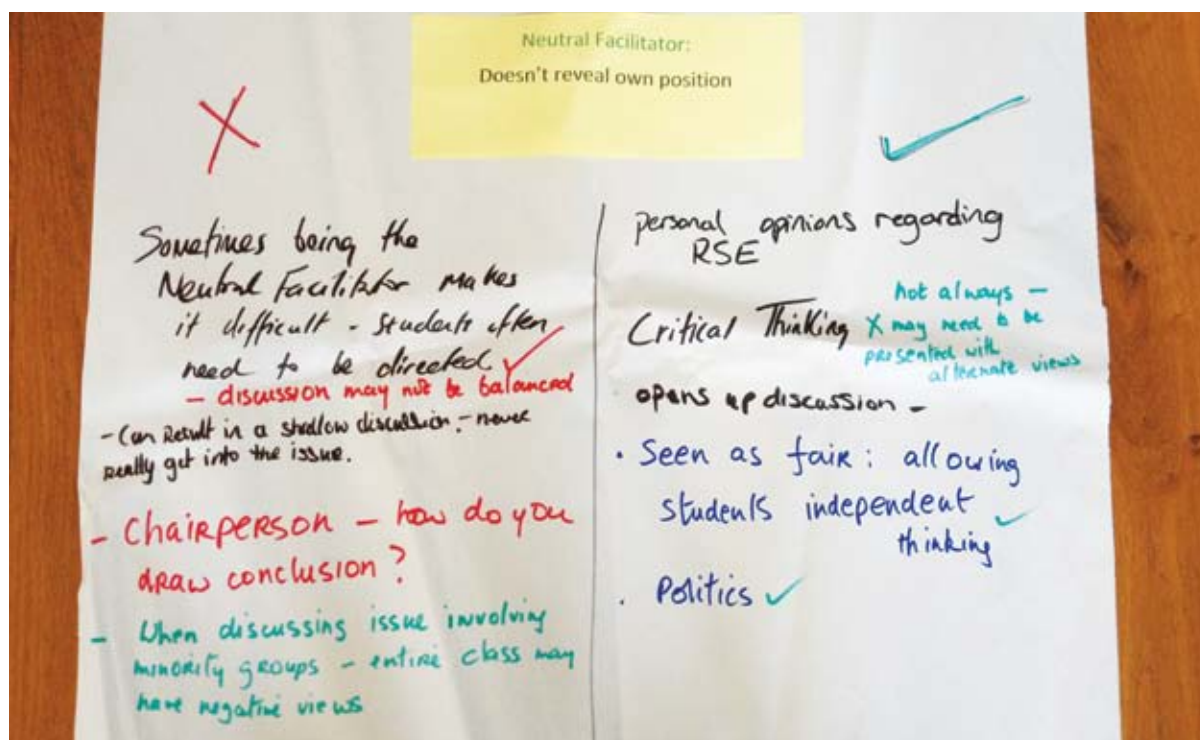 Neutral Facilitator:
Doesn't reveal own position
Sometimes being the
Neutral Facilitator makes
it difficult - students often
need to be directed
- discussion may not be balanced
- Can Result in a shallow discussion - never
really get into the issue.
- Chairperson - how do you
draw conclusion?
- When discussing issue involving
minority groups - entire class may
have negative views
personal opinions regarding
RSE
Critical Thinking
not always -
X may need to be
presented with
alternate views
opens up discussion -
• Seen as fair: allowing
students independent
thinking
. Politics